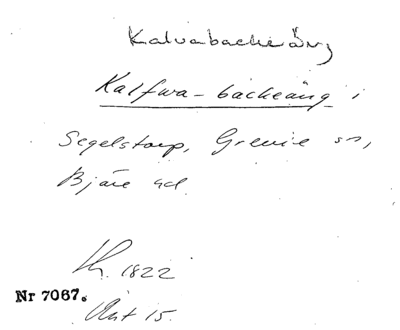 Kalvabackeäng
Kalfwa-backeäng i
Segelstorp, Grevie sn,
Bjäre hd.
1822
Nr 7067.
Akt 15.